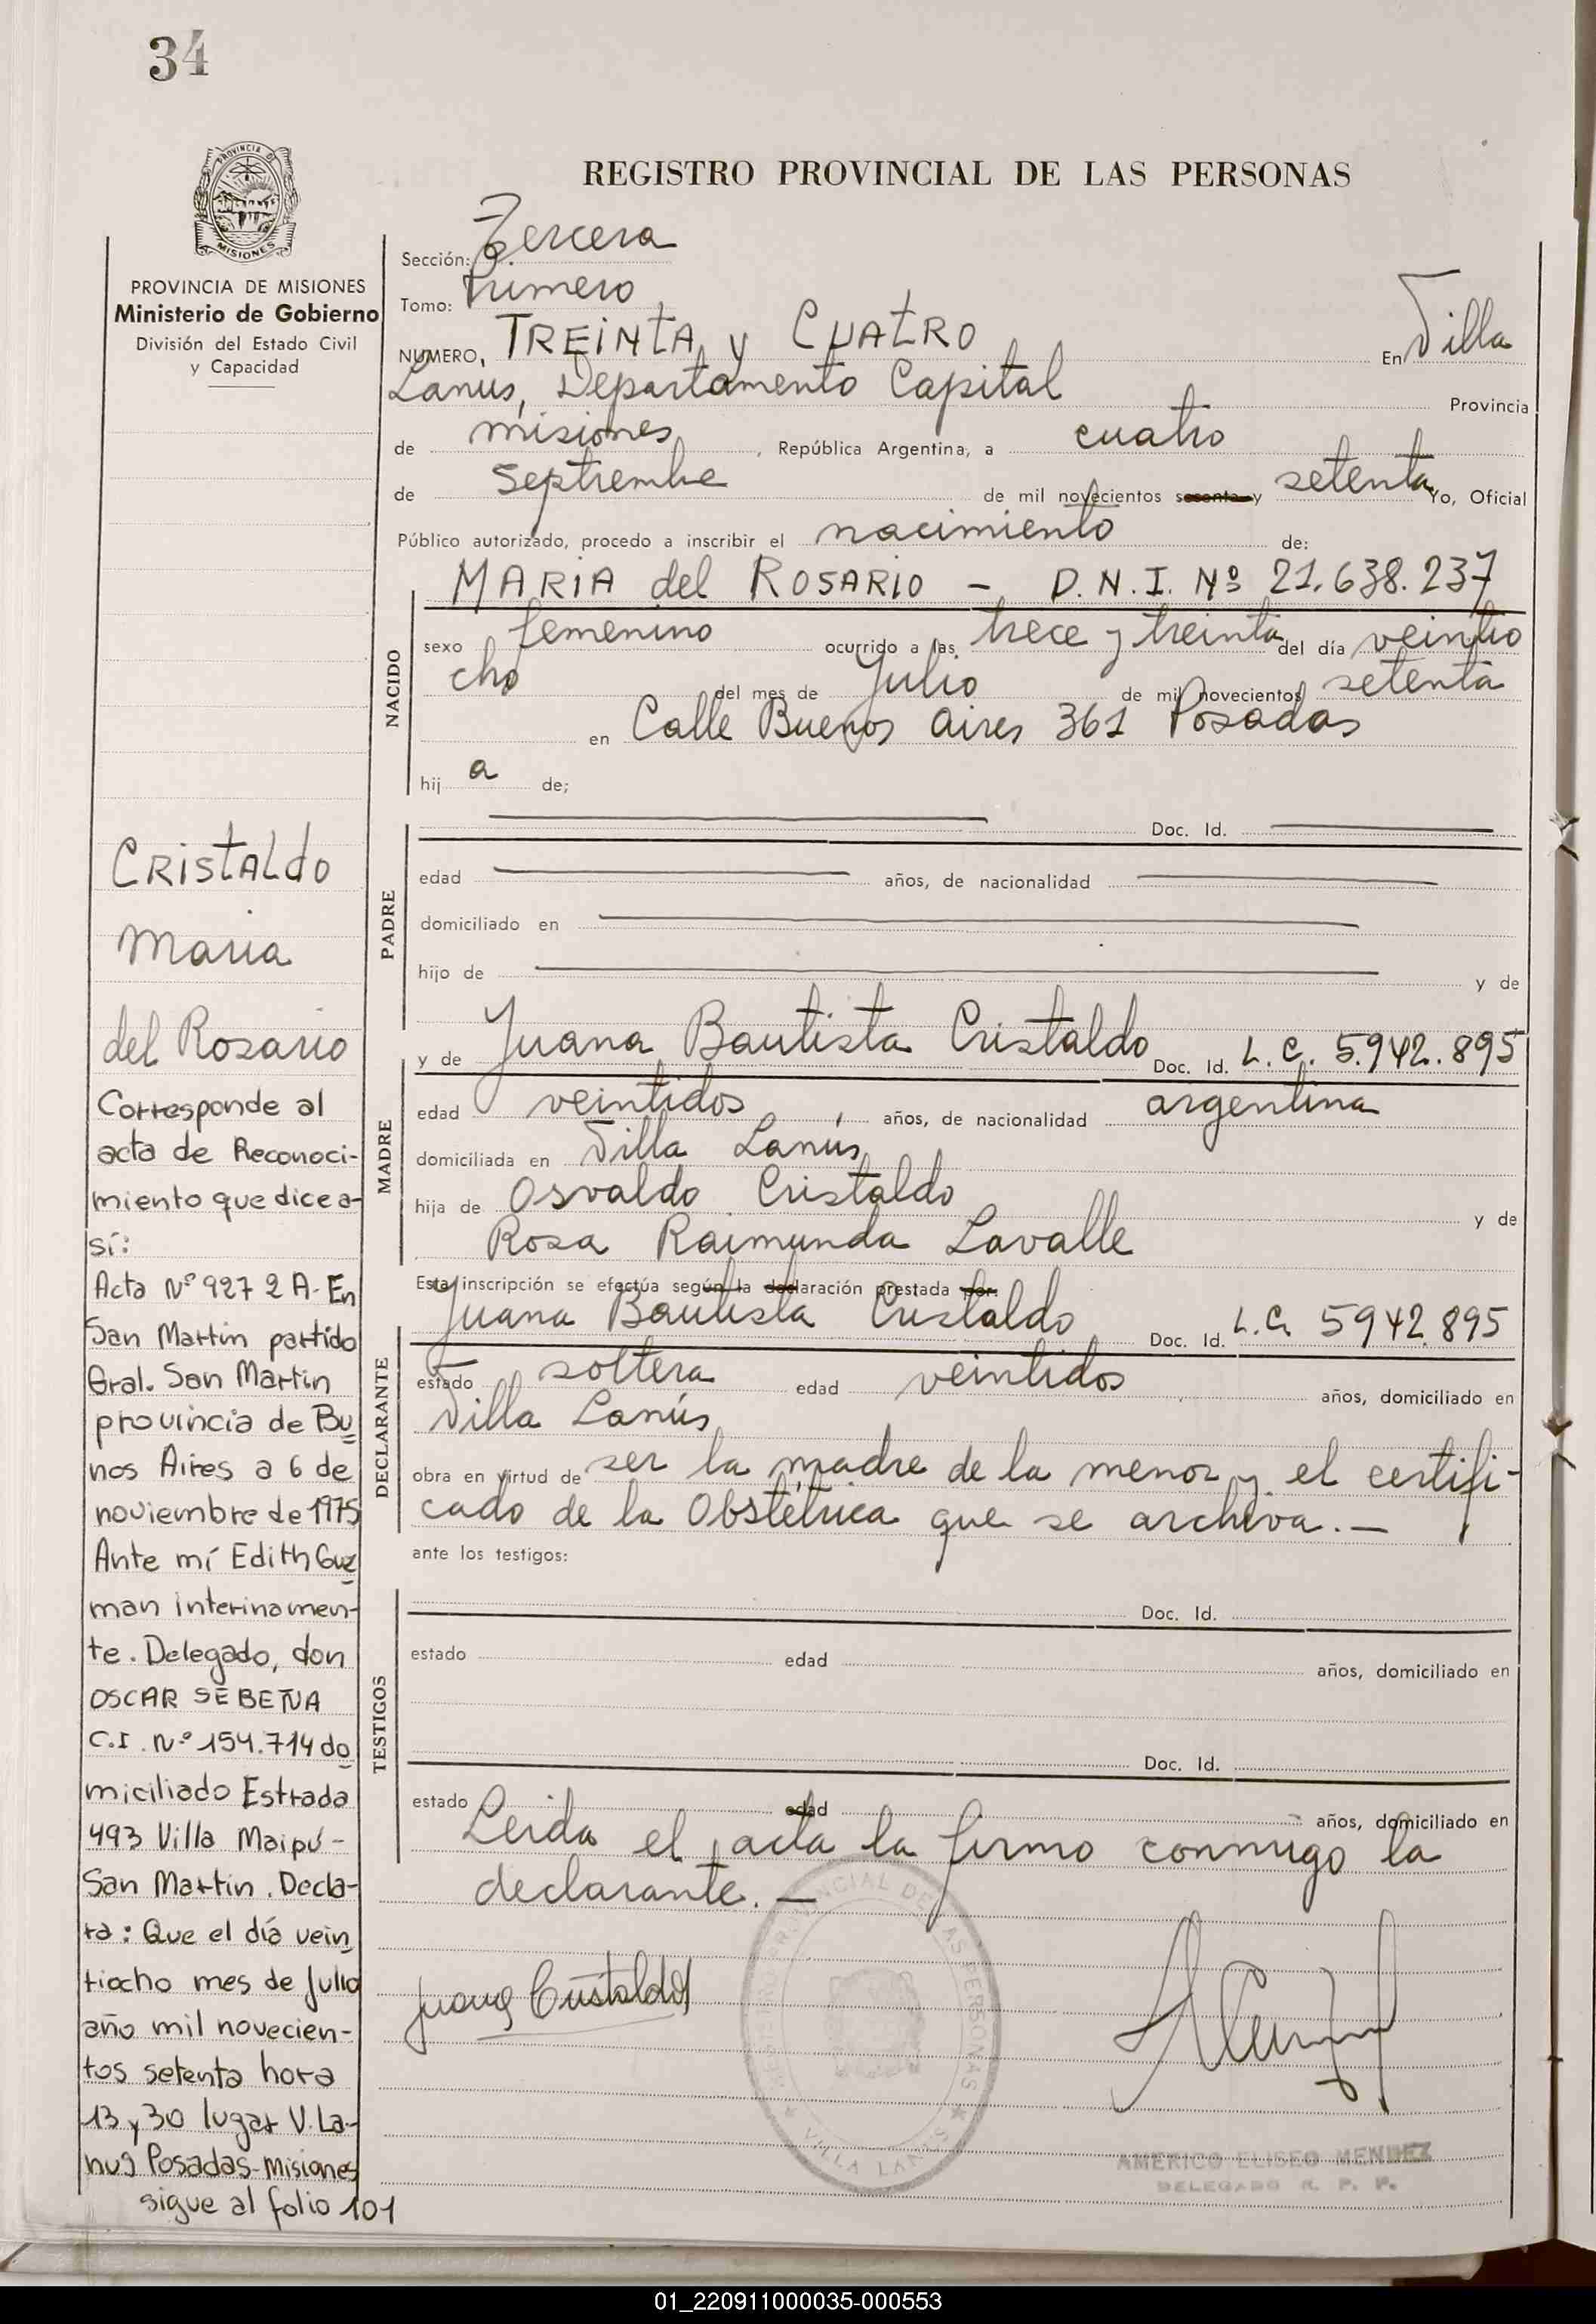 34
REGISTRO PROVINCIAL DE LAS PERSONAS
PROVINCIA DE
MISIONES
PROVINCIA DE MISIONES
Ministerio de Gobierno
División del Estado Civil
y Capacidad
Sección: Tercera
Tomo: Primero
NUMERO, TREINTA y CUATRO En Villa
Lanus, Departamento Capital Provincia
de misiones, República Argentina, a cuatro
de septiembre de mil novecientos sesenta y setenta Yo, Oficial
Público autorizado, procedo a inscribir el nacimiento de:
MARIA del ROSARIO - D.N.I. Nº 21.638.237
NACIDO
sexo femenino ocurrido a las trece y treinta del día veintio
cho del mes de Julio de mil novecientos setenta
en Calle Buenos Aires 361 Posadas
hij a de;
Doc. Id.
PADRE
edad años, de nacionalidad
domiciliado en
hijo de y de
y de Juana Bautista Cristaldo Doc. Id. L.C. 5.942.895
MADRE
edad veintidos años, de nacionalidad argentina
domiciliada en Villa Lanús
hija de Osvaldo Cristaldo y de
Rosa Raimunda Lavalle
Esta inscripción se efectúa según la declaración prestada por:
Juana Bautista Cristaldo Doc. Id. L.C. 5942.895
DECLARANTE
estado soltera edad veintidos años, domiciliado en
Villa Lanús
obra en virtud de ser la madre de la menor y el certifi-
cado de la Obstétrica que se archiva.—
ante los testigos:
Doc. Id.
TESTIGOS
estado edad años, domiciliado en
Doc. Id.
estado edad años, domiciliado en
Leida el acta la firmo conmigo la
declarante.—
Juana Cristaldo
REGISTRO PROVINCIAL DE LAS PERSONAS
VILLA LANUS
AMERICO ELISEO MENDEZ
DELEGADO R. P. P.
CRISTALdo
Maria
del Rosario
Corresponde al
acta de Reconoci-
miento que dice a-
sí:
Acta Nº 927 2 A- En
San Martin partido
Gral. San Martin
provincia de Bu
nos Aires a 6 de
noviembre de 1975
Ante mí Edith Guz
man interinamen-
te. Delegado, don
OSCAR SEBEÑA
C.I. Nº 154.714 do
miciliado Estrada
493 Villa Maipú-
San Martin. Decla-
ra: Que el día vein
tiocho mes de Julio
año mil novecien-
tos setenta hora
13 y 30 lugar V. La-
nus Posadas-Misiones
sigue al folio 101
01_220911000035-000553